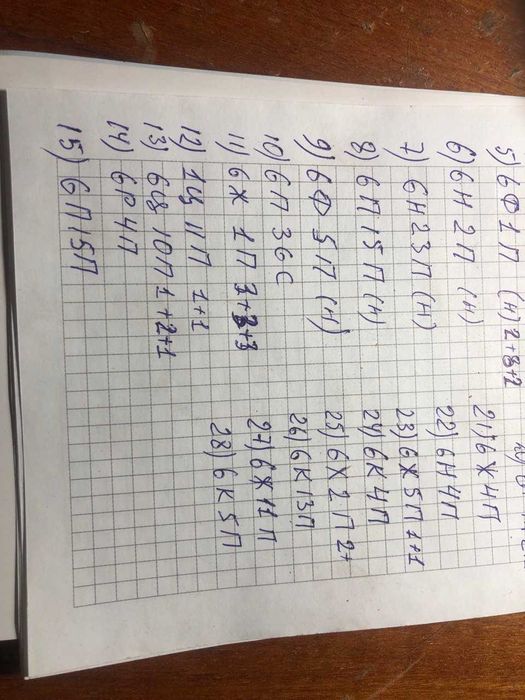 5) 6Ф 1П (Н) 2+8+2
6) 6Н 2П (Н)
7) 6Н 23П (Н)
8) 6П 15П (Н)
9) 6Ф 5П (Н)
10) 6П 36С
11) 6Ж 1П
12) 1Ц 11П 1+1
13) 6Ц 10П 1+2+1
14) 6Р 4П
15) 6П 15П
21) 6Ж 4П
22) 6Н 4П
23) 6Ж 5П 1+1
24) 6К 4П
25) 6Х 2П 2+
26) 6К 13П
27) 6Ж 11П
28) 6К 5П